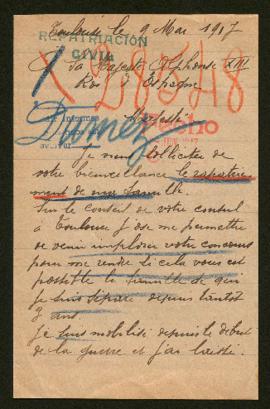 Toulouse le 9 Mai 1917
REPATRIACIÓN
CIVIL
A Sa Majesté Alphonse XIII
Roi d'Espagne
Majesté
Je viens solliciter de
votre bienveillance le rapatrie-
ment de ma famille.
Sur le conseil de votre consul
à Toulouse j'ose me permettre
de venir implorer votre concours
pour me rendre si cela vous est
possible la famille de qui
je suis séparé depuis tantôt
3 ans.
Je suis mobilisé depuis le début
de la guerre et j'ai laissé